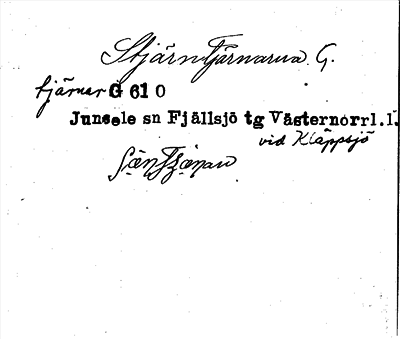 Stjärntjärnarna G.
tjärnar G 61 0
Junsele sn Fjällsjö tg Västernorrl.l.
vid Kläppsjö